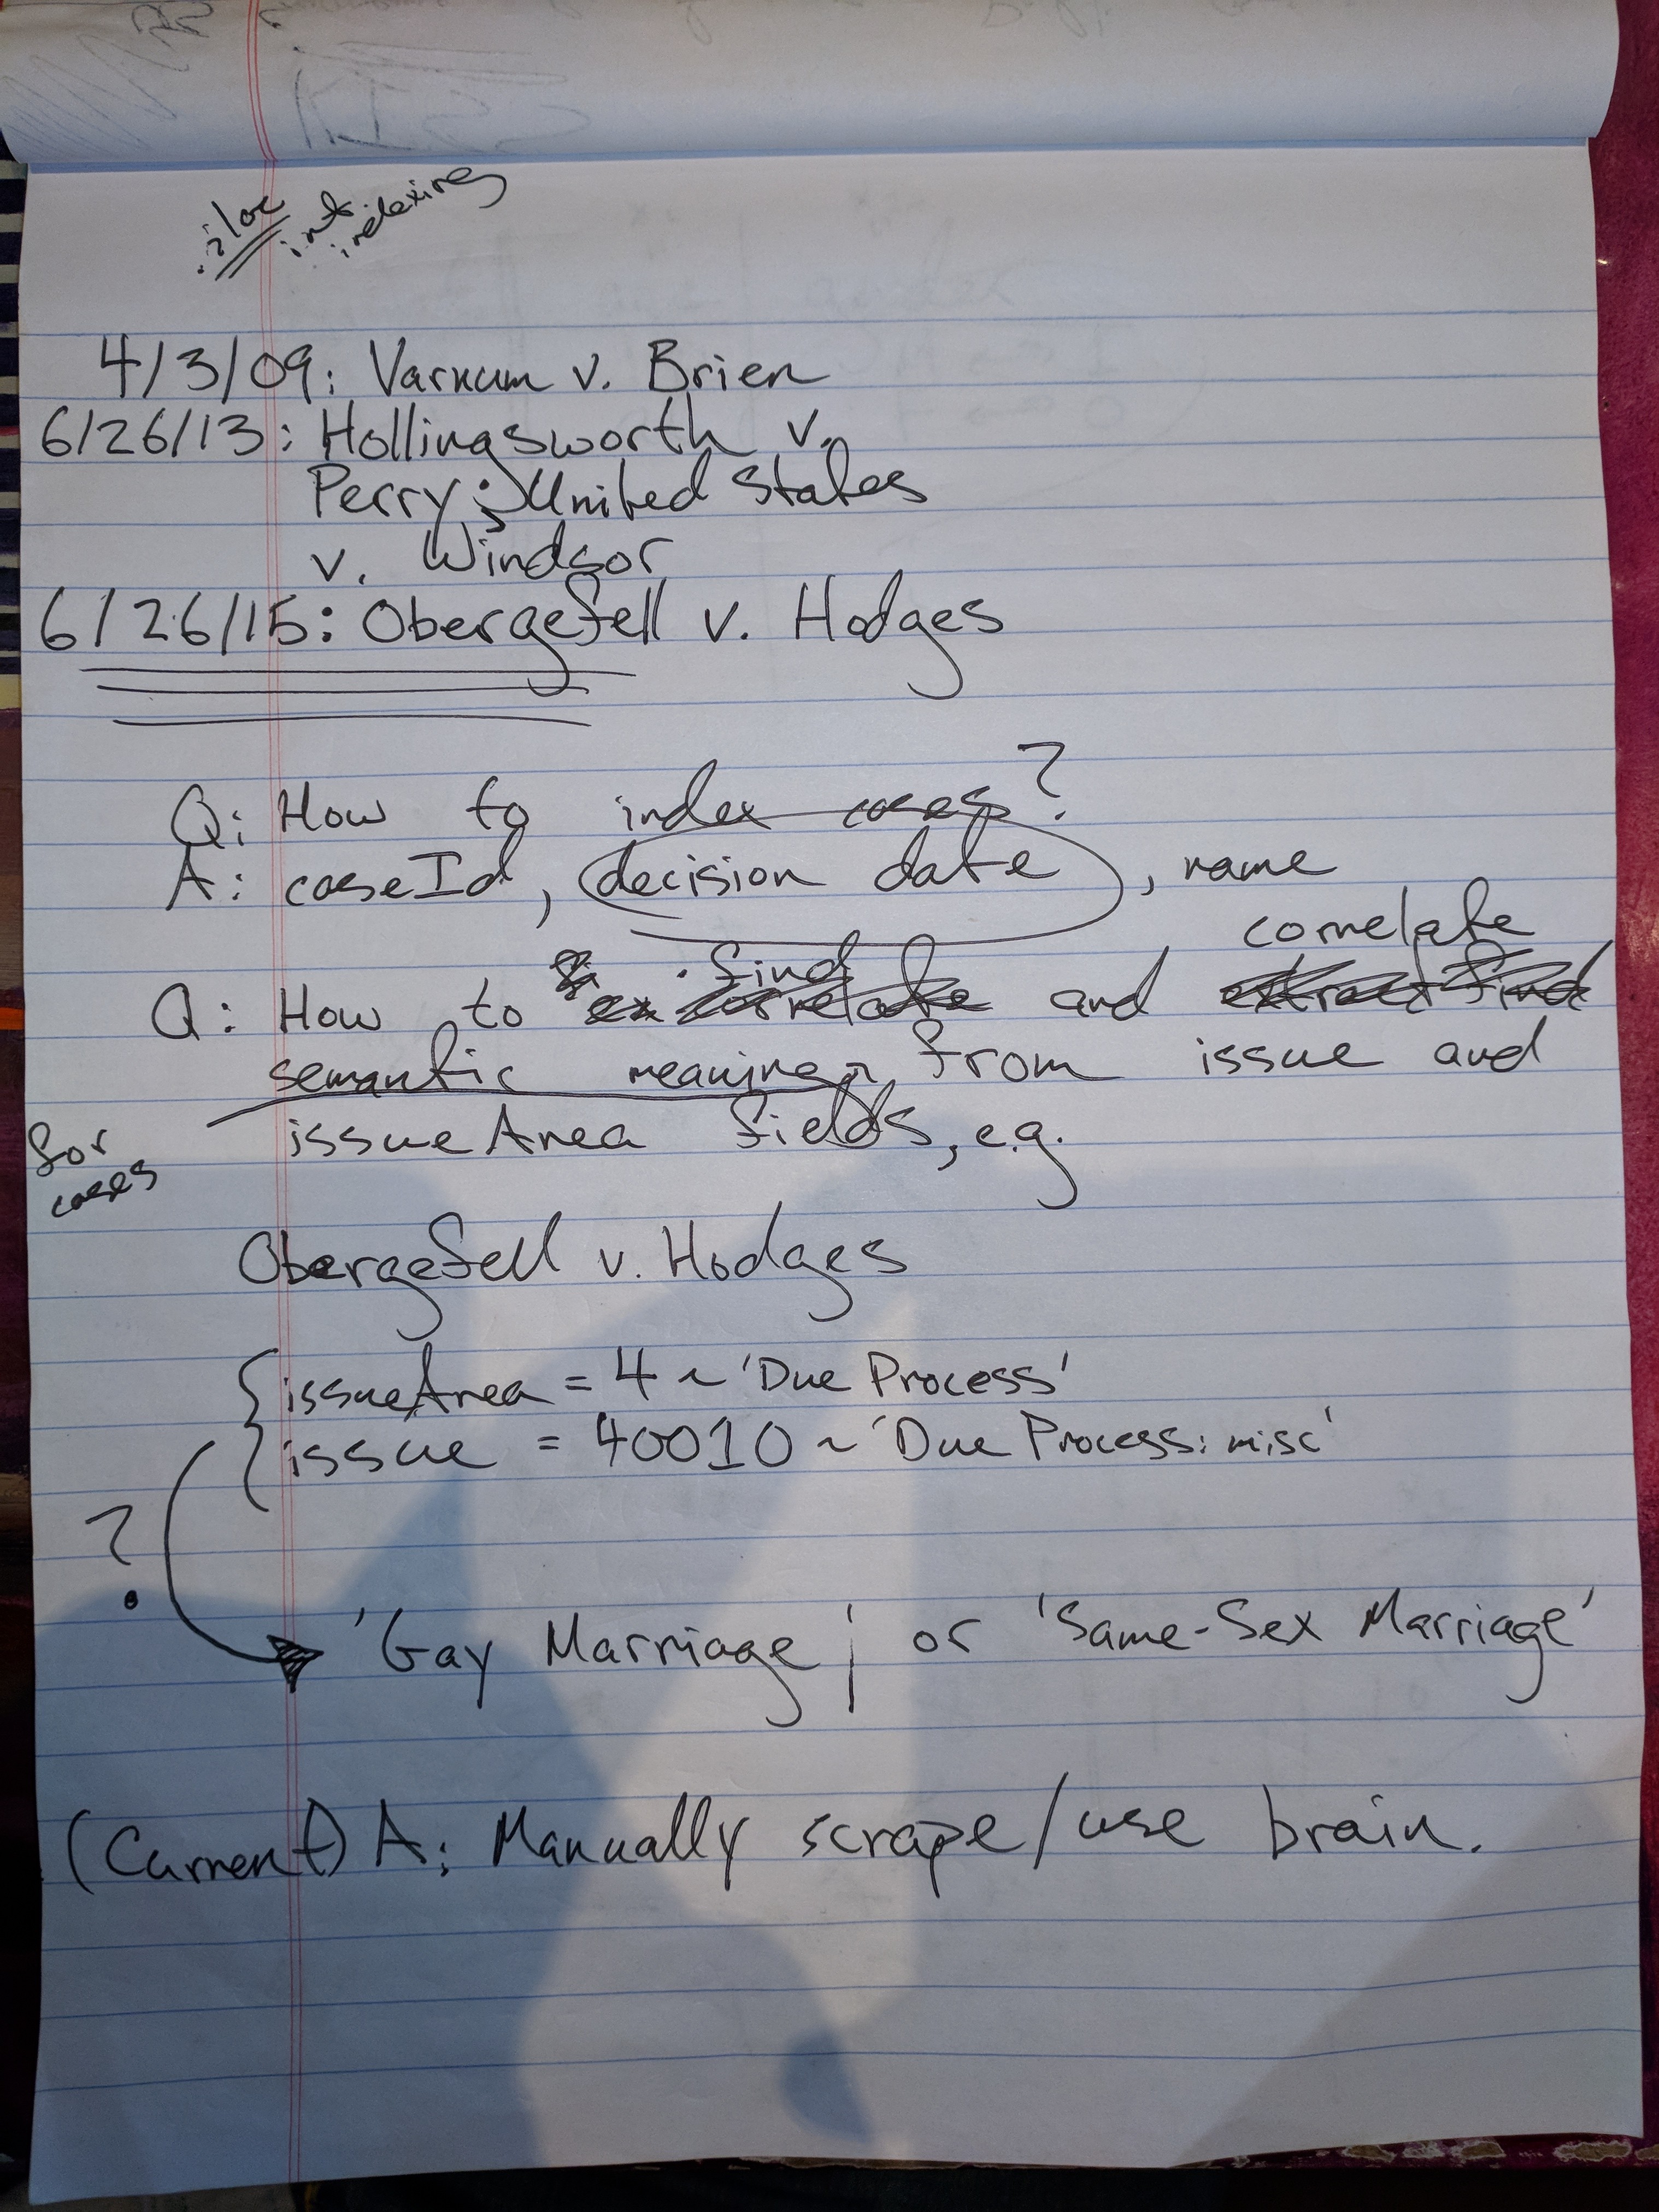 .iloc
int.
indexing
4/3/09: Varnum v. Brien
6/26/13: Hollingsworth v.
Perry; United States
v. Windsor
6/26/15: Obergefell v. Hodges
Q: How to index cases?
A: caseId, decision date, name
correlate
find
Q: How to and
semantic meaning from issue and
issueArea fields, e.g.
for
cases
Obergefell v. Hodges
issueArea = 4 ~ 'Due Process'
issue = 40010 ~ 'Due Process: misc'
?
'Gay Marriage' or 'Same-Sex Marriage'
(Current) A: Manually scrape/use brain.